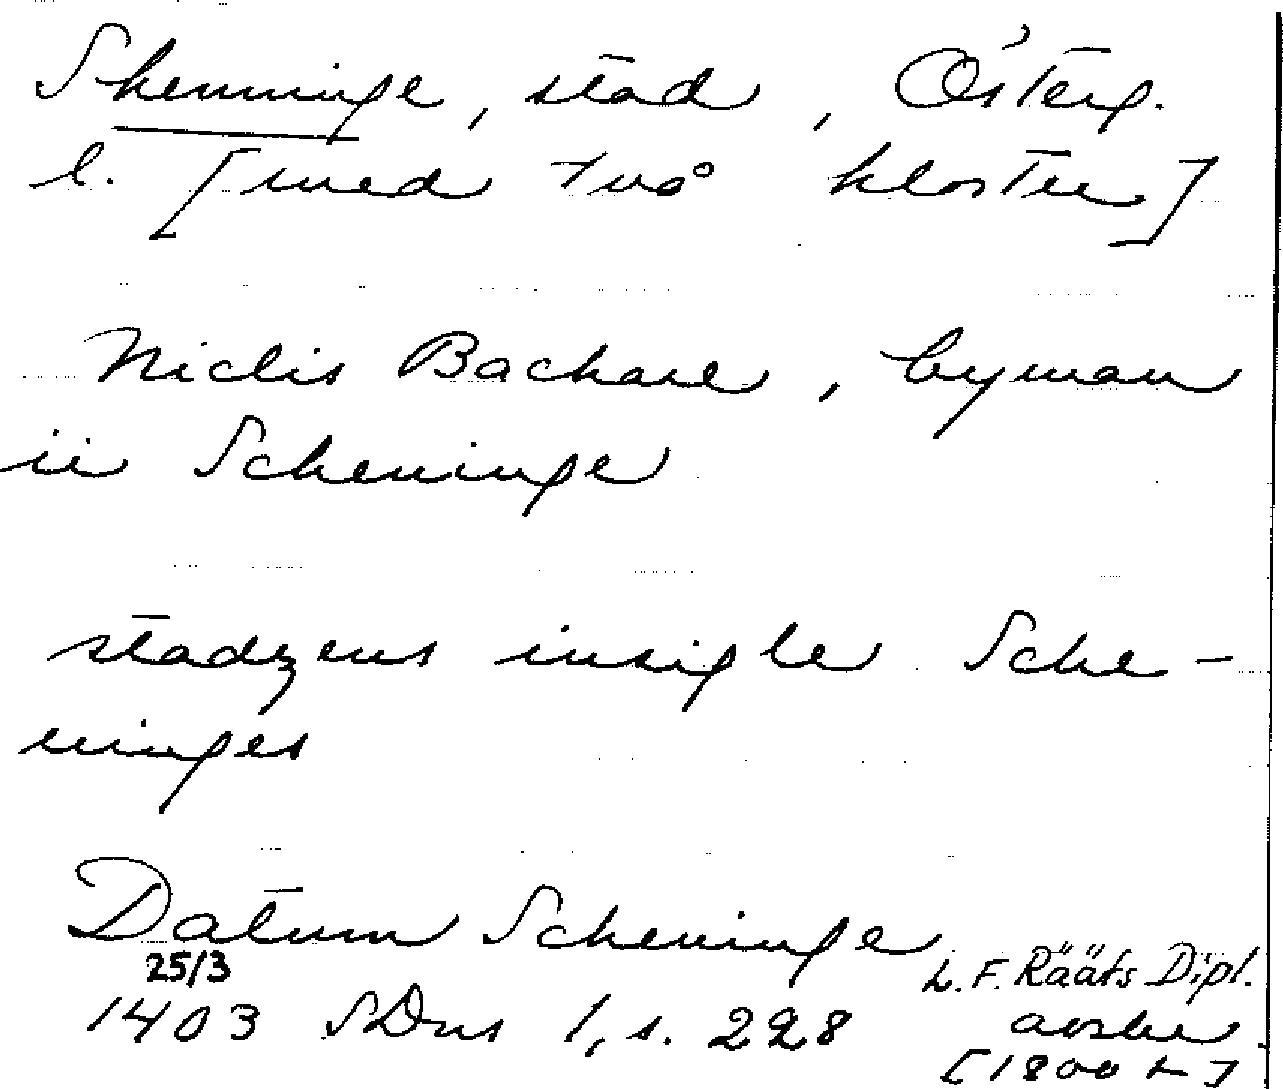 Skenninge, stad, Österg.
l. [med två kloster]
Niclis Backare, byman
ii Scheninge
stadzens insigle Sche-
ninges
Datum Scheninge
25/3
1403 SDns 1, s. 228
L. F. Rääfs Dipl.
avskr
[1800 t.]